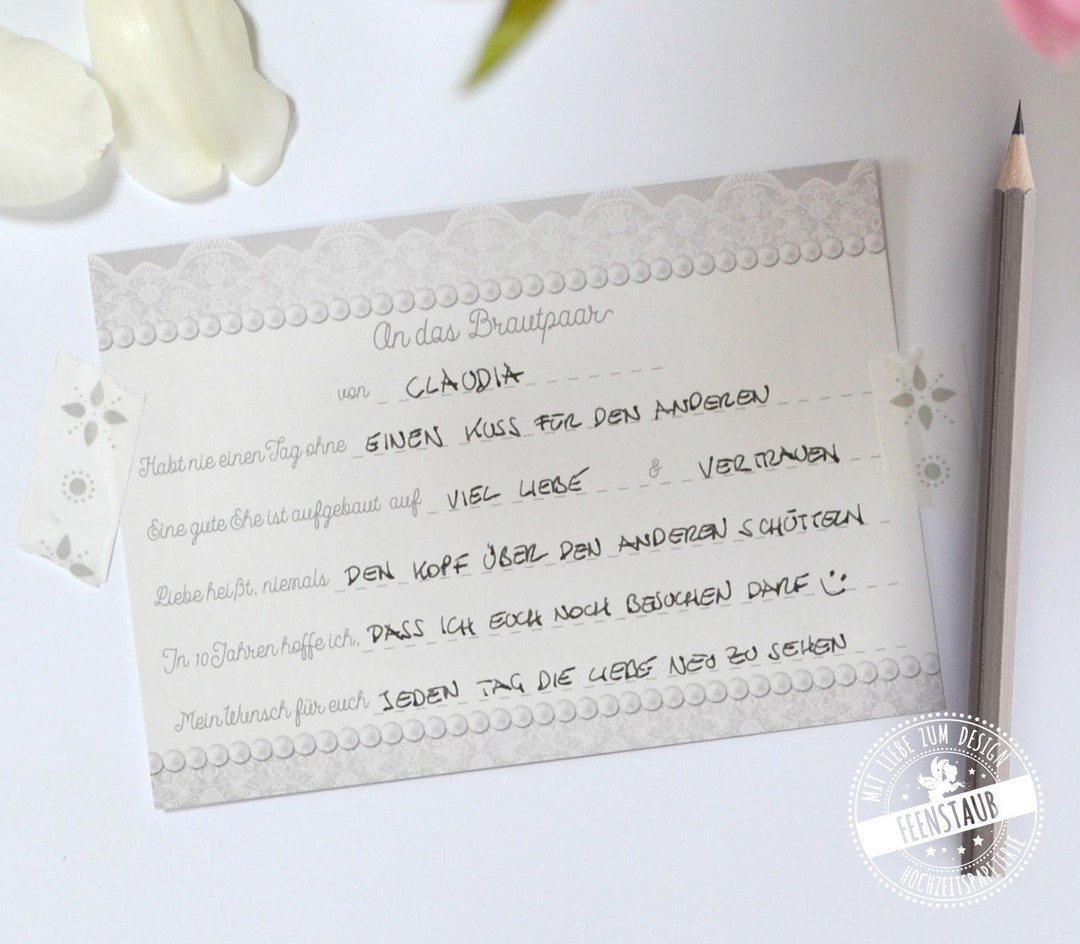 An das Brautpaar
von CLAUDIA
Habt nie einen Tag ohne EINEN KUSS FÜR DEN ANDEREN
Eine gute Ehe ist aufgebaut auf VIEL LIEBE & VERTRAUEN
Liebe heißt, niemals DEN KOPF ÜBER DEN ANDEREN SCHÜTTELN
In 10 Jahren hoffe ich, DASS ICH EUCH NOCH BESUCHEN DARF
Mein Wunsch für euch JEDEN TAG DIE LIEBE NEU ZU SEHEN
MIT LIEBE ZUM DESIGN
FEENSTAUB
HOCHZEITSPAPETERIE